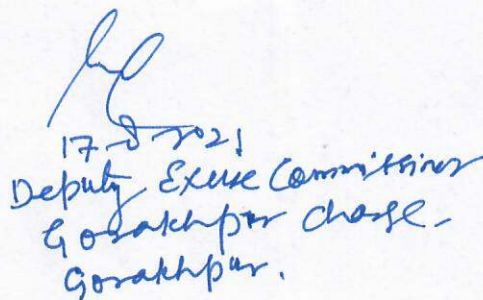 17-8-2021
Deputy Excise Commissioner
Gorakhpur charge-
Gorakhpur.